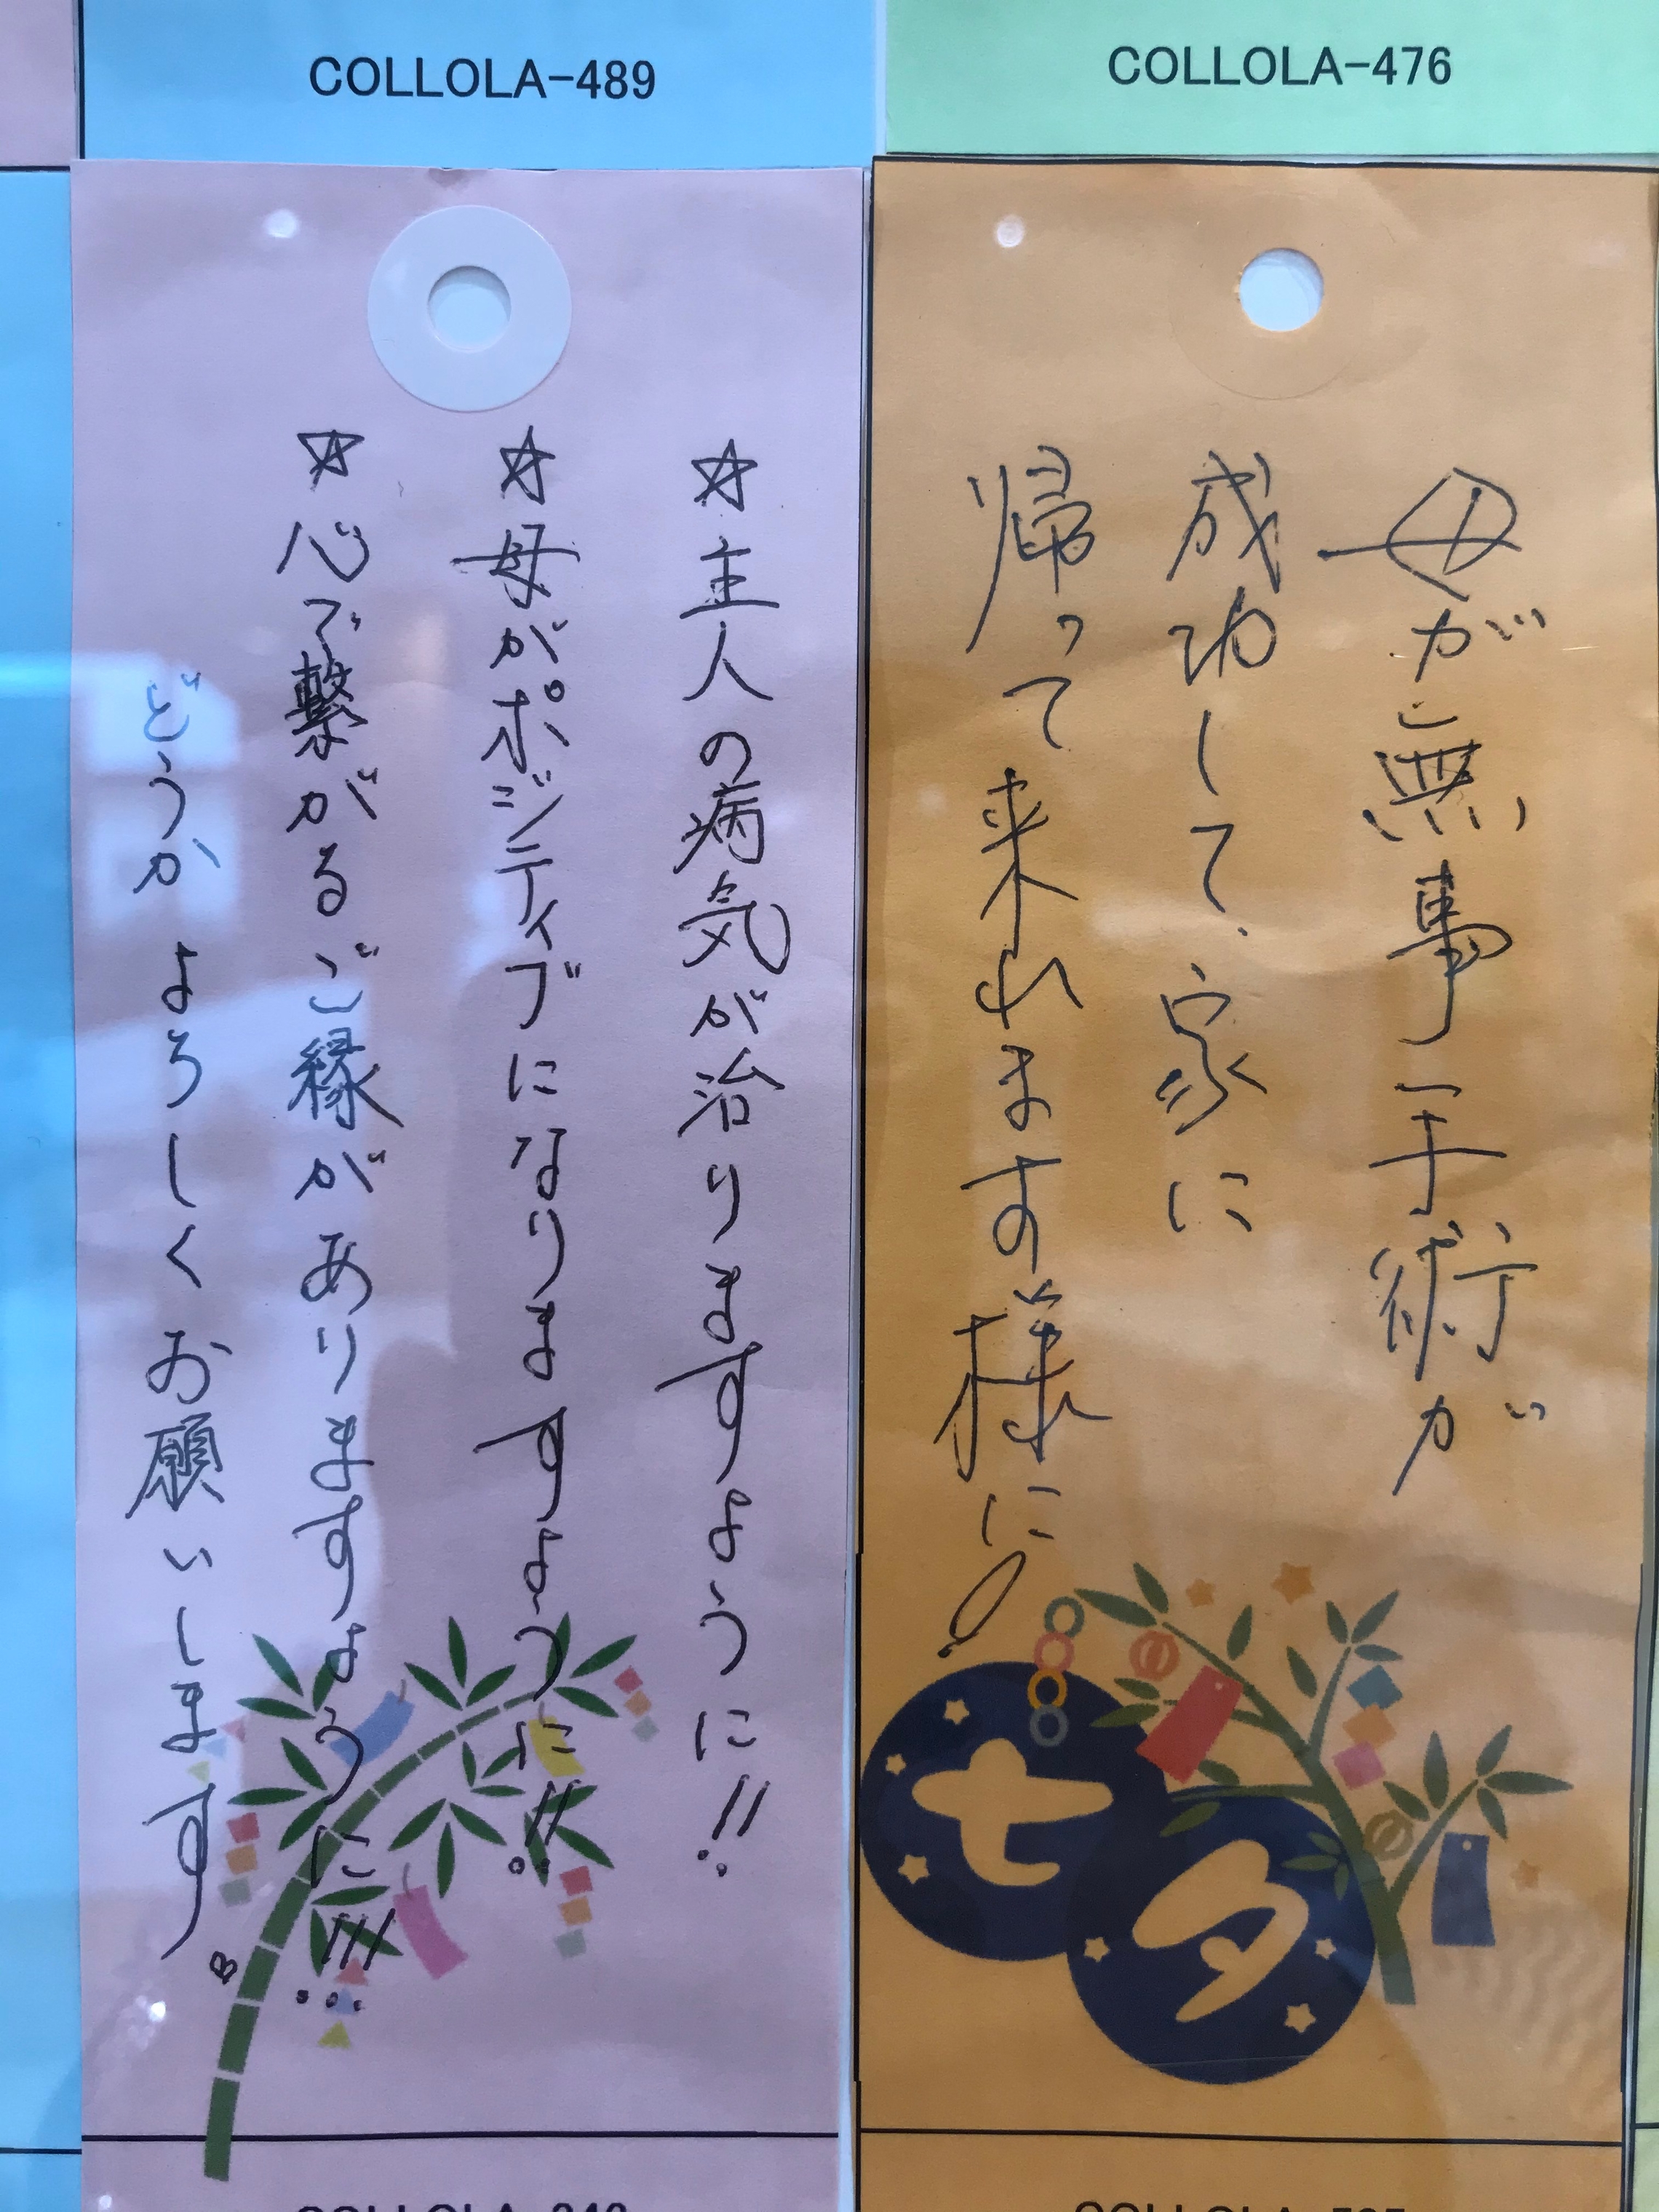 COLLOLA-489
COLLOLA-476
☆主人の病気が治りますように!!
☆母がポジティブになりますように!!
☆心で繋がるご縁がありますように!!!
どうかよろしくお願いします
母が無事手術が
成功して、家に
帰って来れます様に!
七夕